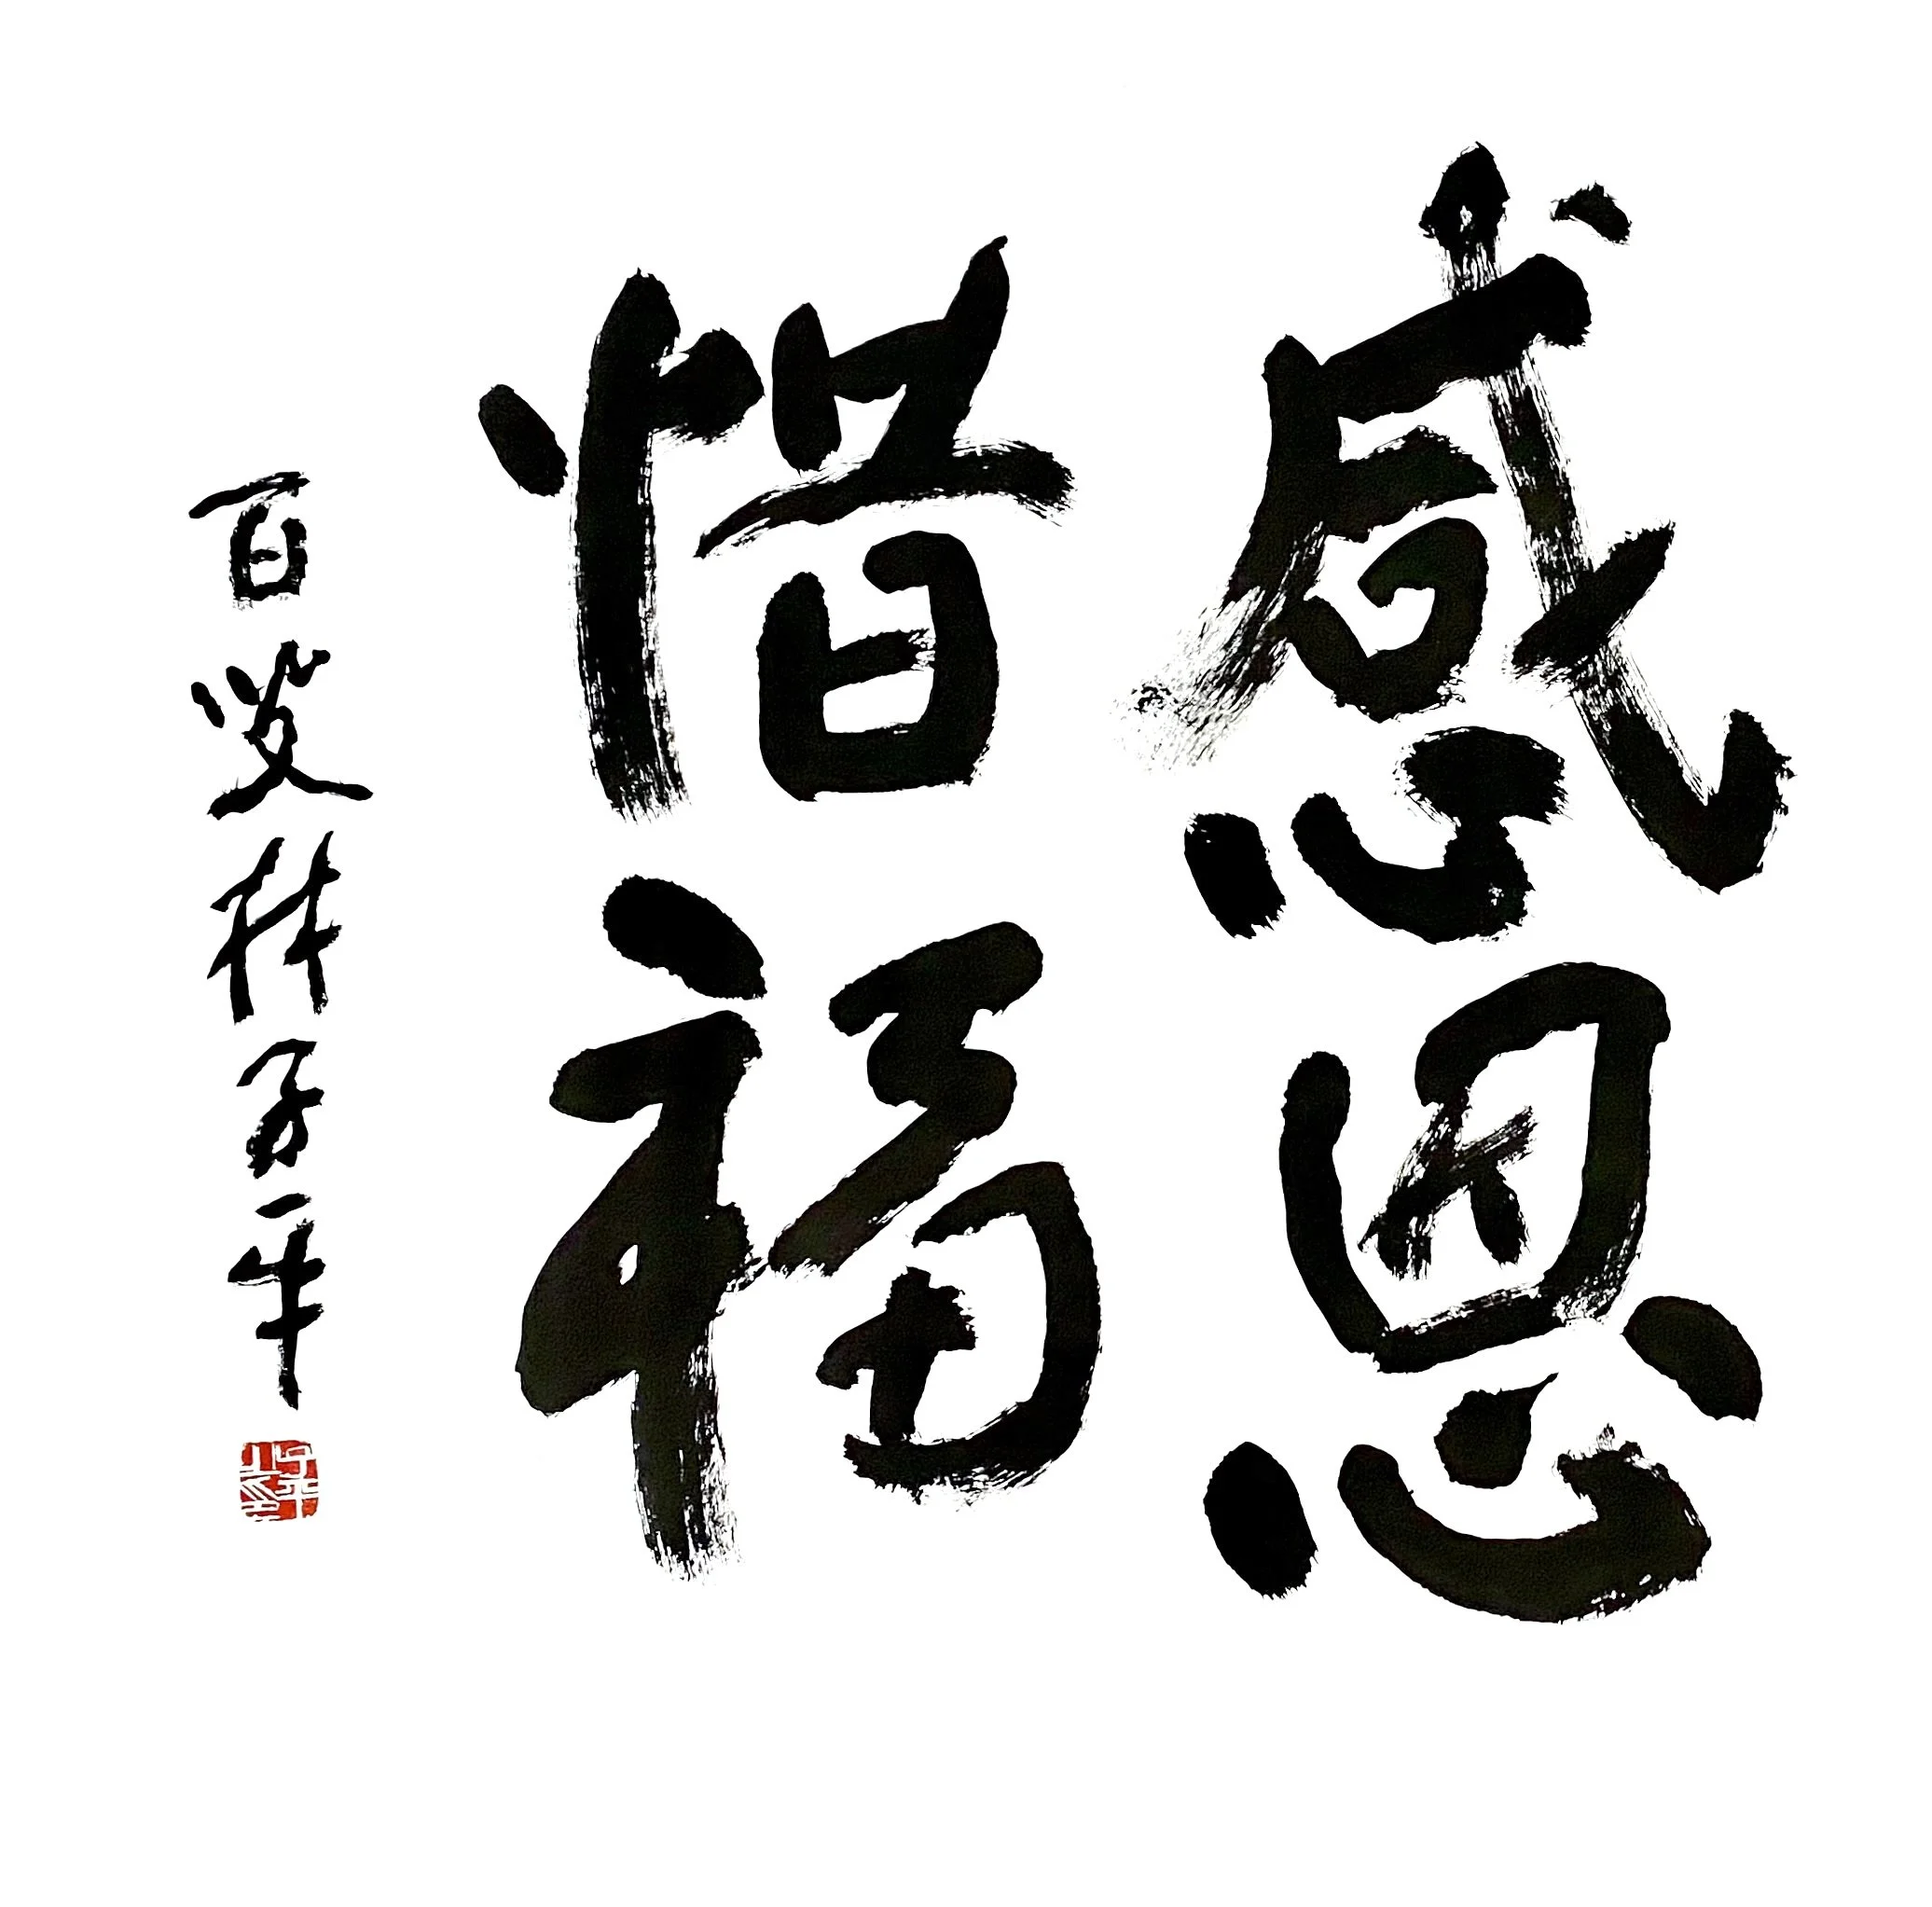 感恩
惜福
百叟林子平